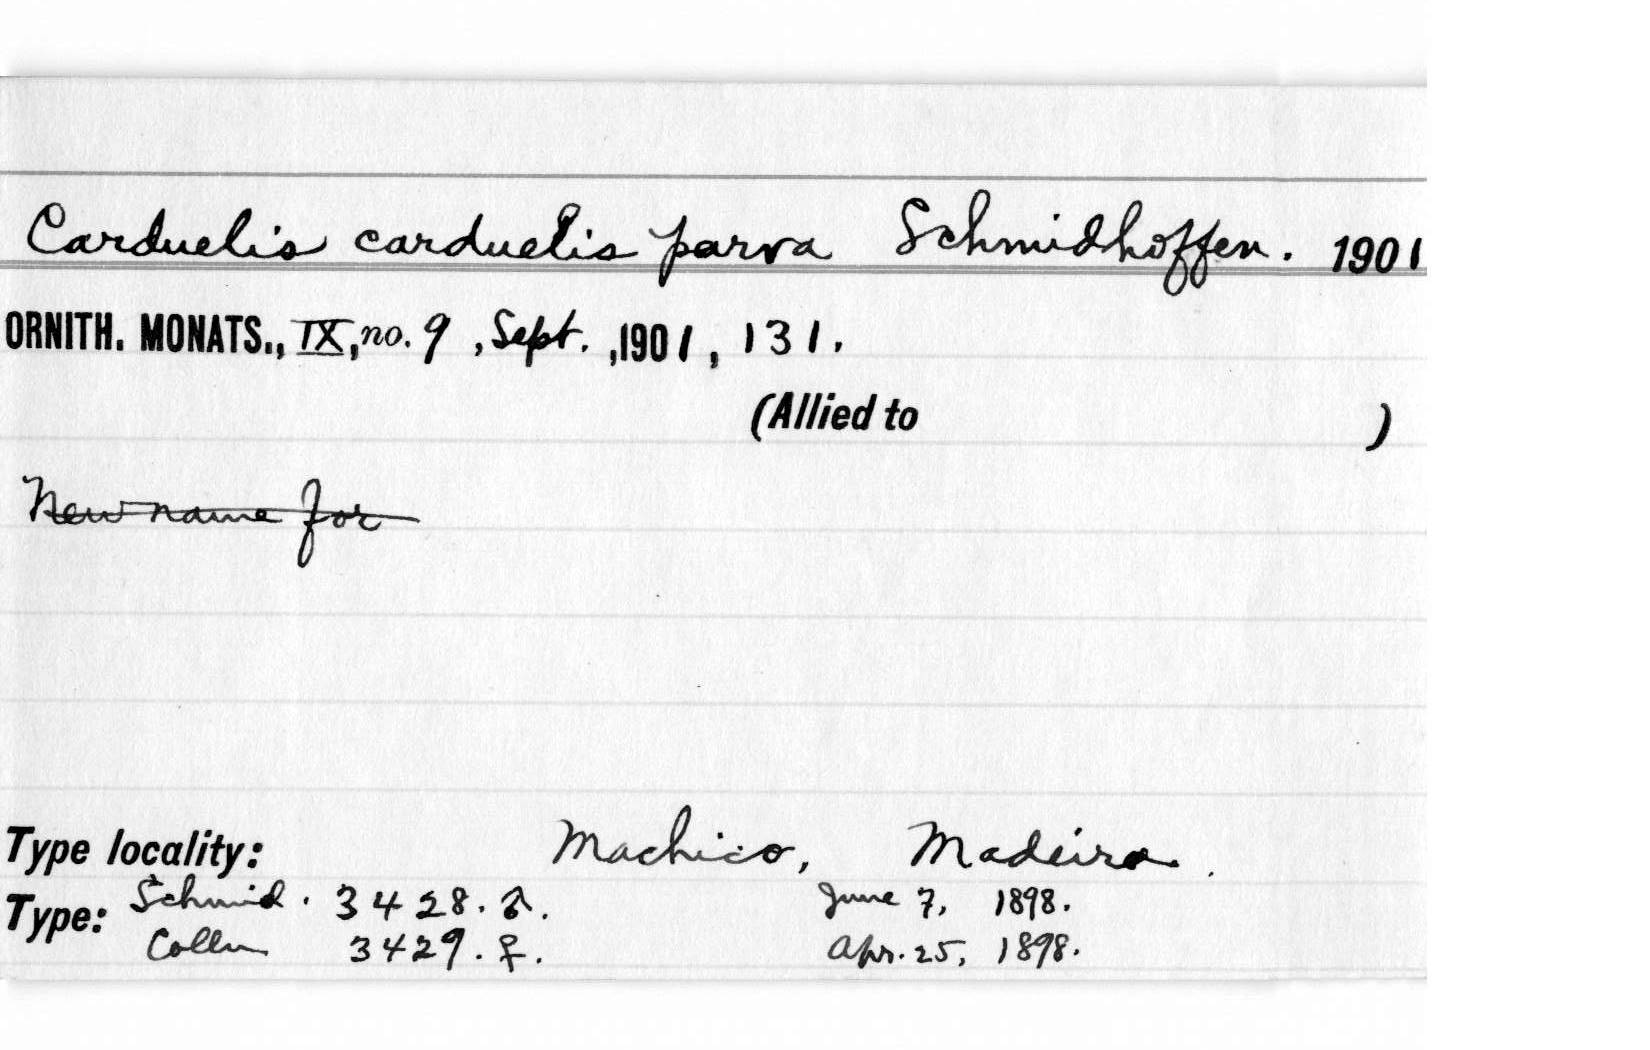 Carduelis carduelis parva Schmidhoffen. 1901
ORNITH. MONATS., IX, no. 9, Sept., 1901, 131.
(Allied to )
New name for
Type locality: Machico, Madeira.
Type: Schmid. 3428. ♂. June 7, 1898.
Colln 3429. ♀. Apr. 25, 1898.